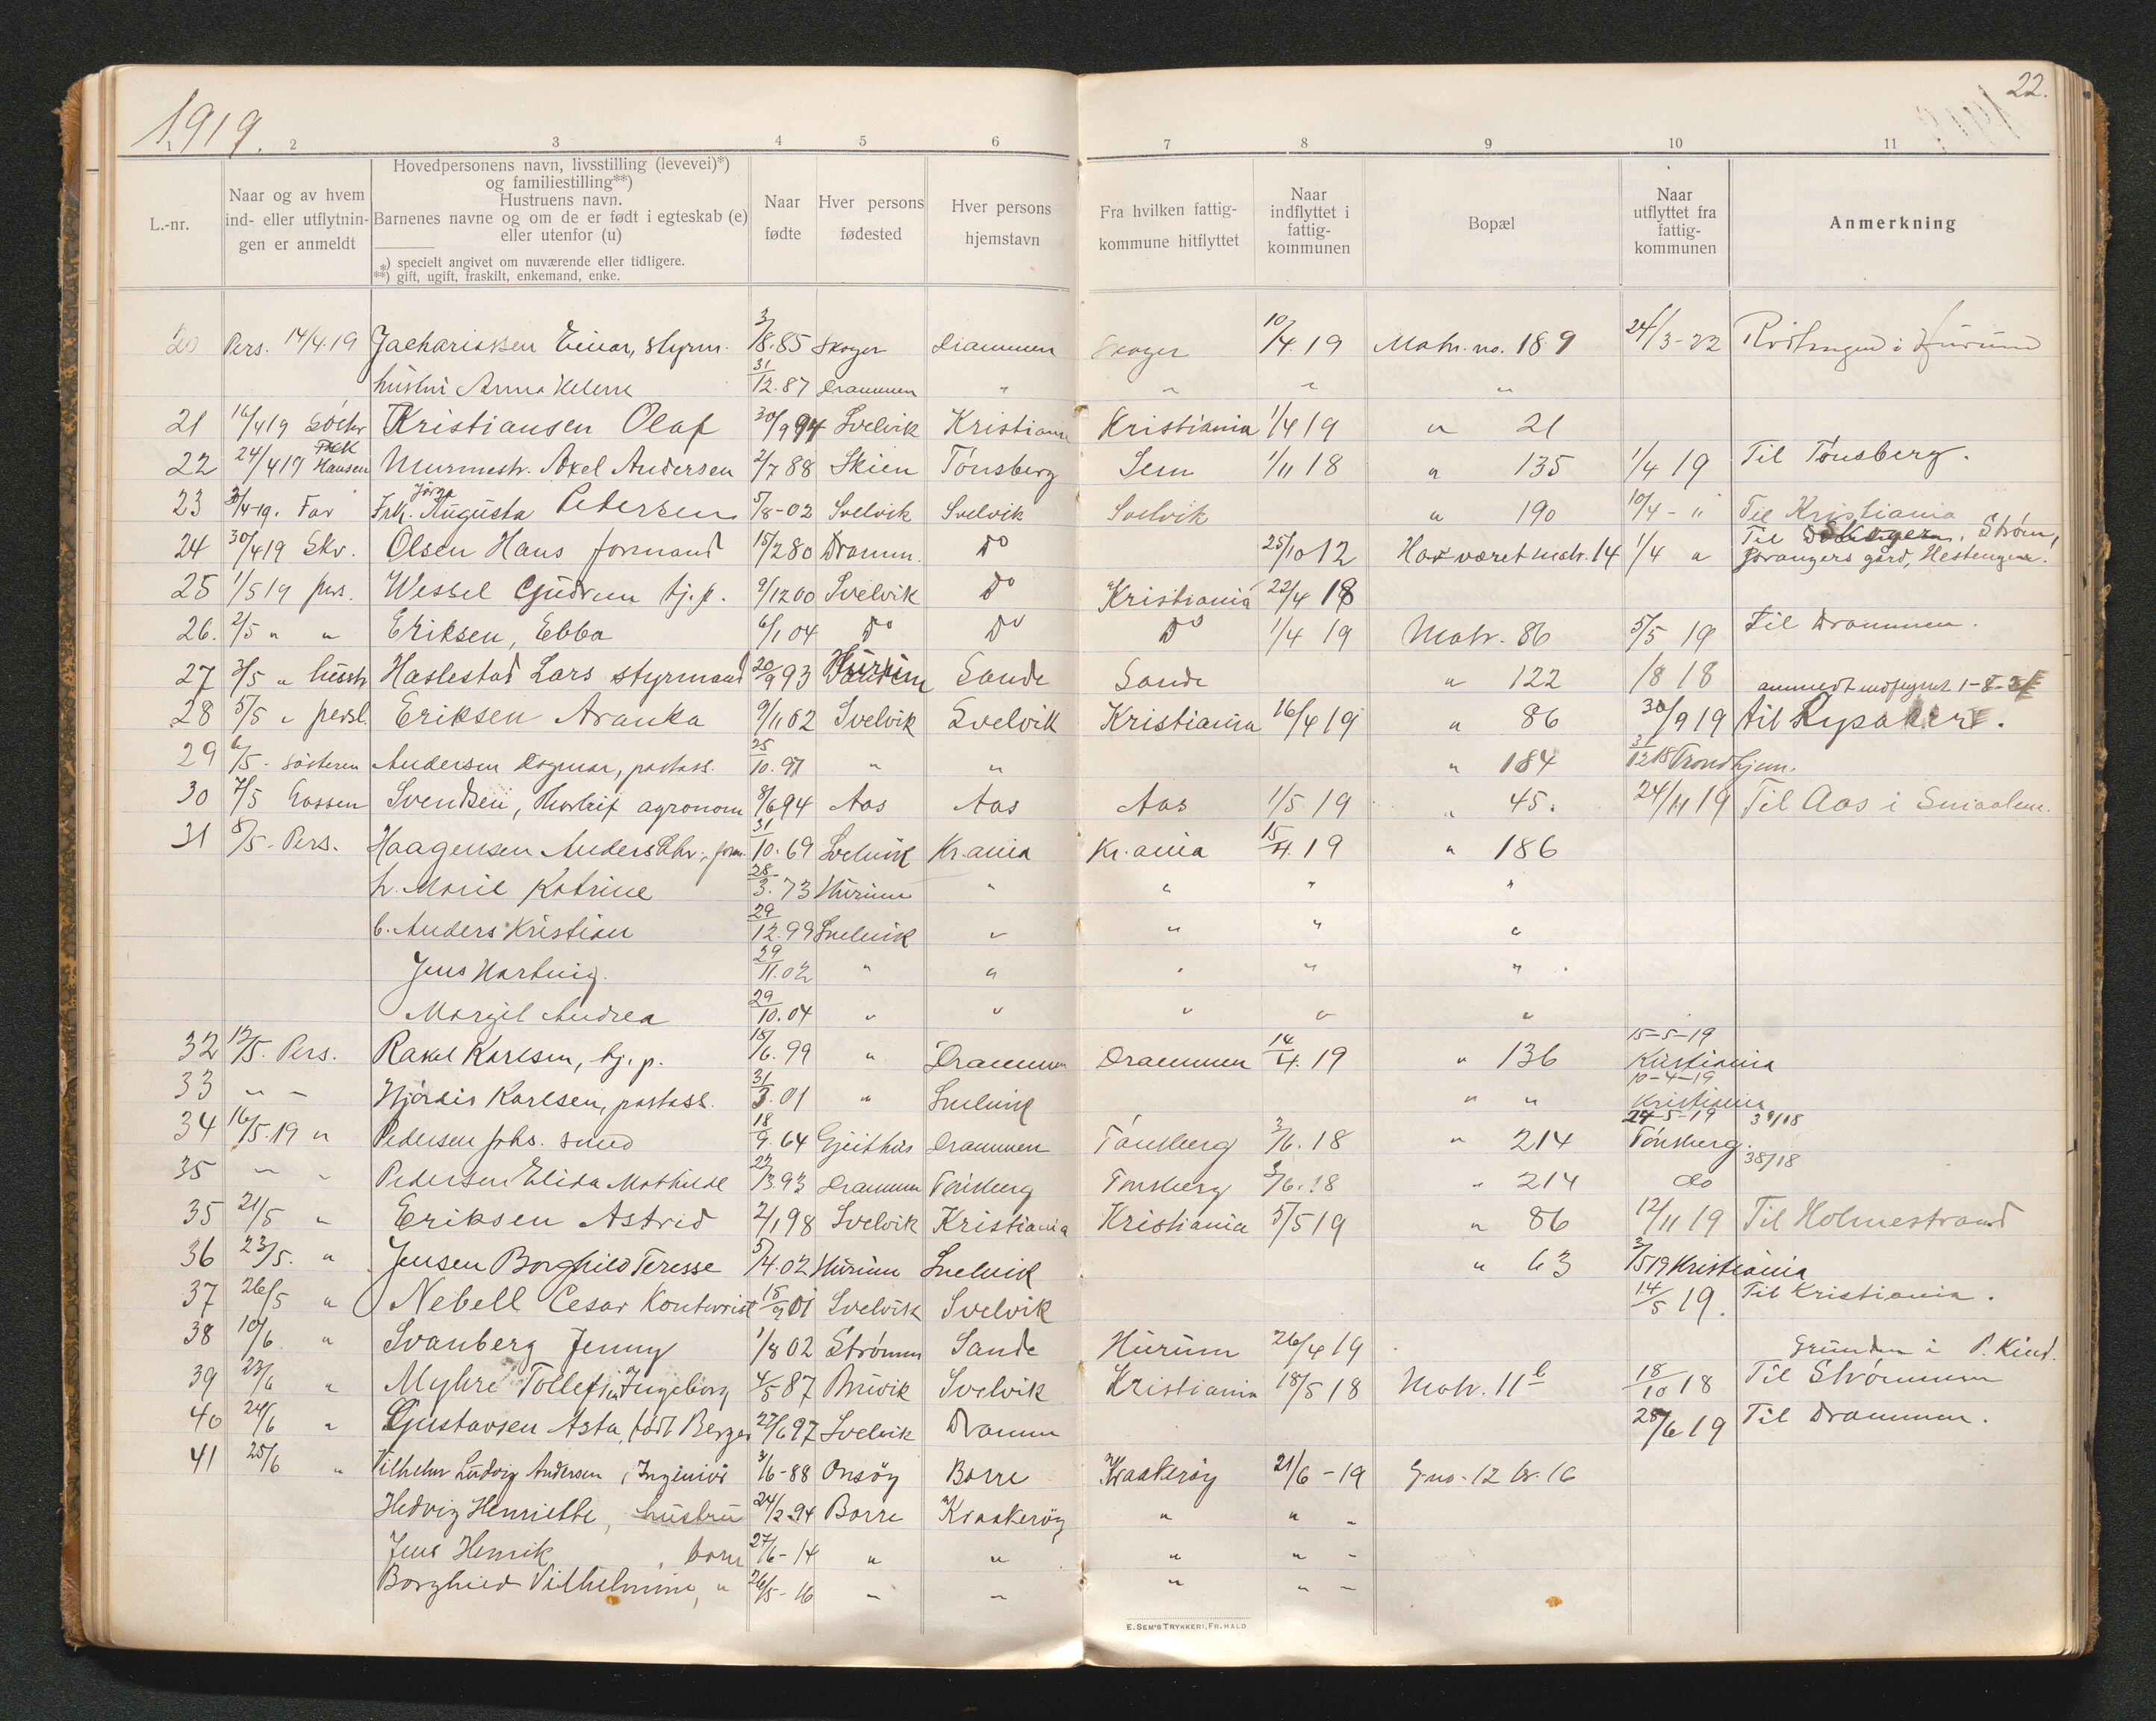 1919.
22.
1 2 3 4 5 6 7 8 9 10 11
L.-nr.
Naar og av hvem ind- eller utflytnin-gen er anmeldt
Hovedpersonens navn, livsstilling (levevei)*) og familiestilling**) Hustruens navn. Barnenes navne og om de er født i egteskab (e) eller utenfor (u)
*) specielt angivet om nuværende eller tidligere.
**) gift, ugift, fraskilt, enkemand, enke.
Naar fødte
Hver persons fødested
Hver persons hjemstavn
Fra hvilken fattig-kommune hitflyttet
Naar indflyttet i fattig-kommunen
Bopæl
Naar utflyttet fra fattig-kommunen
Anmerkning
20 Pers. 14/4.19 Zachariassen Einar, styrm. 3/8.85 Skoger Drammen Skoger 10/4.19 Matr. no. 189 24/3-22 i Hurum
hustru Anna Helene 31/12.87 Drammen " " " "
21 16/4 19 Kristiansen Olaf 30/9 94 Svelvik Kristiania Kristiania 1/4 19 " 21
22 24/4 19 Hansen Murmestr. Axel Andersen 2/7 88 Skien Tönsberg Sem 1/11 18 " 135 1/4 19 Til Tönsberg.
23 30/4-19. Far Frk. Augusta Petersen 5/8-02 Svelvik Svelvik Svelvik " 190 10/4 - " Til Kristiania
24 30/4 19 Skr. Olsen Hans formand 15/2 80 Dramm. Do 25/10 12 Har været matr. 14 1/4 " Til Skoger, Strøm, gård, Hestengen.
25 1/5 19 pers. Wessel Gudrun tj.p. 9/12 00 Svelvik Do Kristiania 22/4 18
26. 2/5 " " Eriksen, Ebba 6/1 04 Do Do Do 1/4 19 Matr. 86 5/5 19 Til Drammen.
27 3/5 " hustr Haslestad Lars styrmand 20/9 93 Hurum Sande Sande " 122 /8 18
28 5/5 " persl. Eriksen Aranka 9/11 02 Svelvik Svelvik Kristiania 16/4 19 " 86 30/9 19 til Rypaker.
29 6/5 - søsteren Andersen Dagmar, postass. 25/10.97 " " " 184 31/12 18 Trondhjem.
30 7/5 Gossen Svendsen, Thorleif agronom 8/6 94 Aas Aas Aas 1/5 19 " 45. 24/11 19 Til Aas i Smaalene.
31 8/5. Pers. Haagensen Anders Chr., form. 31/10.69 Svelvik Kr.ania Kr.ania 15/4.19 " 186
h. Marie Katrine 28/3.73 Hurum " " " "
b. Anders Kristian 29/12.99 Svelvik " " " "
Jens Hartvig. 29/11.02 " " " " "
Margit Andrea 29/10.04 " " " " "
32 12/5. Pers. Rakel Karlsen, tj.p. 18/6.99 " Drammen Drammen 14/4.19 " 136 15-5-19 Kristiania
33 " " Hjördis Karlsen, postass. 31/3.01 " Svelvik " " 10-4-19 Kristiania
34 16/5.19 " Pedersen Johs. smed 18/9.64 Gjeithus Drammen Tönsberg 3/6.18 " 214 24-5-19 Tönsberg. 39/18
35 " " Pedersen Elida Mathilde 22/3.93 Drammen Tönsberg Tönsberg 3/6.18 " 214 do 38/18
35 21/5 " Eriksen Astrid 2/1 98 Svelvik Kristiania Kristiania 5/5 19 " 86 12/11 19 Til Holmestrand
36 23/5. " Jensen Borghild Teresse 5/4.02 Hurum Svelvik " 63 3/5 19 Kristiania
37 26/5 " Nebell Cesar Kontorist 15/9 01 Svelvik Svelvik 14/5 19. Til Kristiania.
38 10/6. " Svanberg Jenny 1/8 02 Strömm Sande Hurum 26/4 19 Grunden i P. Kind.
39 23/6 " Myhre Tollef Ingeborg 4/5 87 Svelvik Kristiania 18/5 18 Matr. 11b 18/10 18 Til Strömmen
40 24/6 " Gustavsen Asta, født Berger 22/6 97 Svelvik Dramm 28/6 19 Til Drammen.
41 25/6 " Vilhelm Ludvig Andersen, Ingeniør 3/6-88 Onsöy Borre Kraakeröy 21/6-19 G.no. 12 br. 16
Hedvig Henriette, hustru 24/2-94 Borre Kraakeröy " " "
Jens Henrik, barn 27/6-14 " " " " "
Borghild Vilhelmine, " 26/5-16 " " " " "
E. SEM'S TRYKKERI, FR. HALD